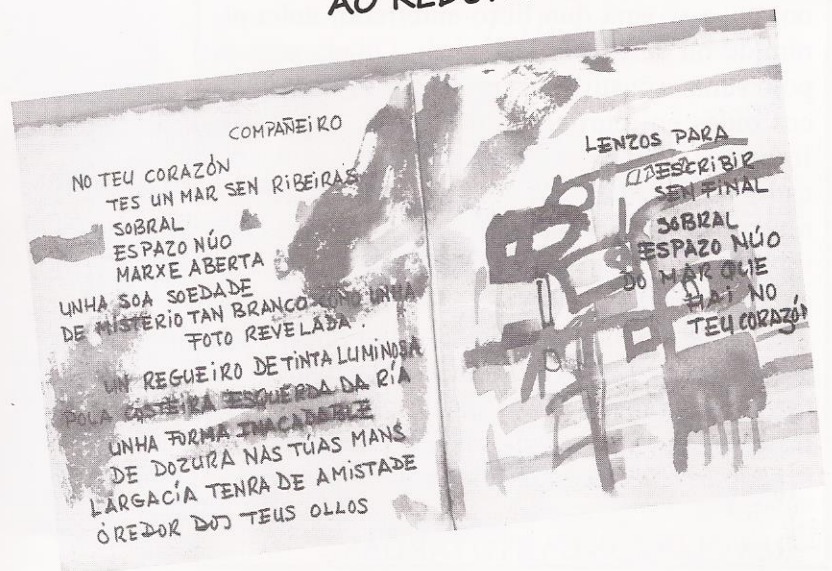 AO
COMPAÑEIRO
NO TEU CORAZÓN
TES UN MAR SEN RIBEIRAS
SOBRAL
ESPAZO NÚO
MARXE ABERTA
UNHA SOA SOEDADE
DE MISTERIO TAN BRANCO COMO UNHA
FOTO REVELADA.
UN REGUEIRO DE TINTA LUMINOSA
POLA COSTEIRA ESQUERDA DA RÍA
UNHA FORMA INACADABLE
DE DOZURA NAS TÚAS MANS
LARGACÍA TENRA DE AMISTADE
ÓREDOR DOS TEUS OLLOS
LENZOS PARA
DESCRIBIR
SEN FINAL
SOBRAL
ESPAZO NÚO
DO MAR QUE
HAI NO
TEU CORAZÓN